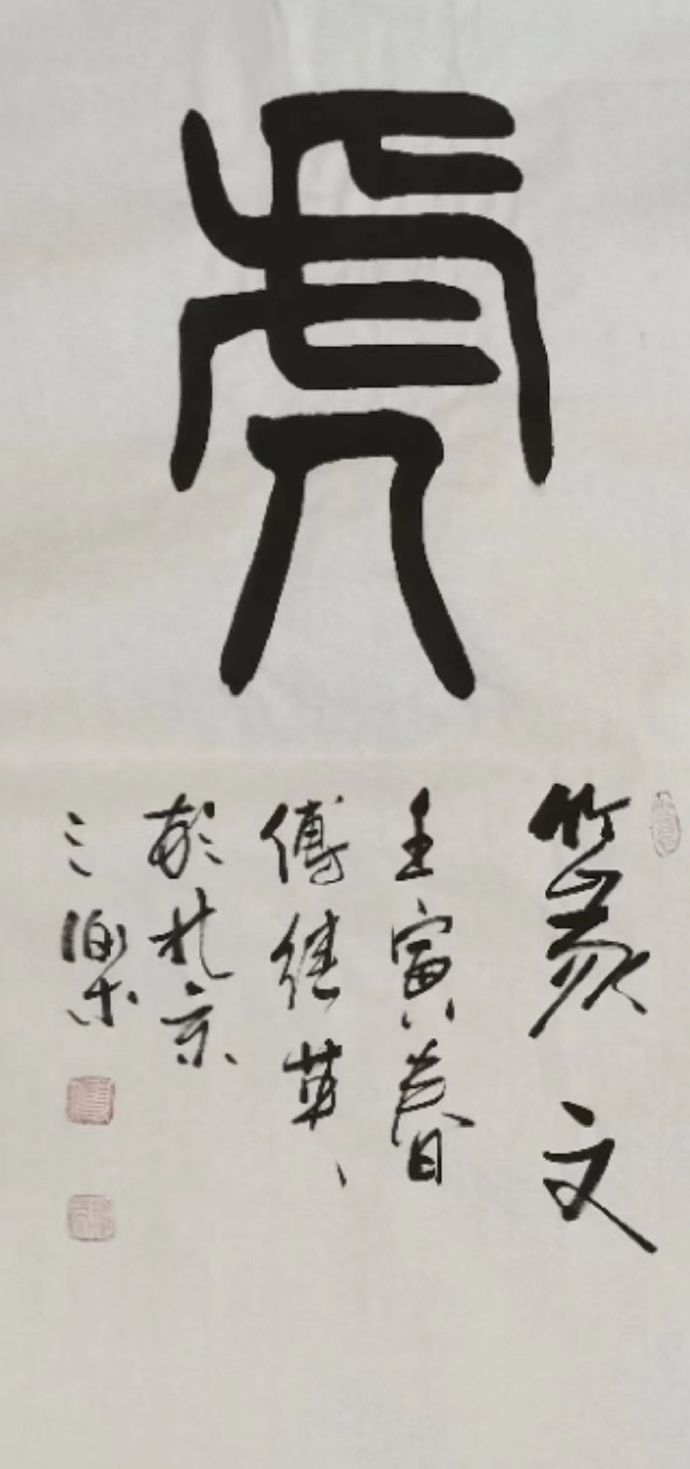 虎
篆文
壬寅春
傅继英
於北京
三乐